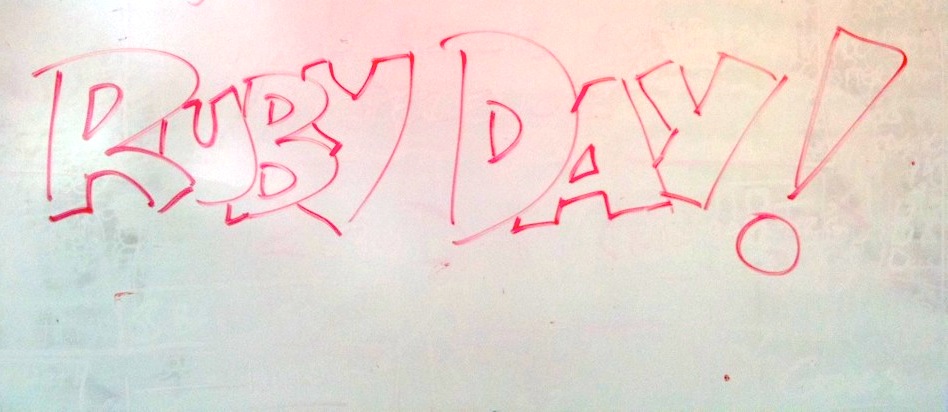 RUBY DAY!